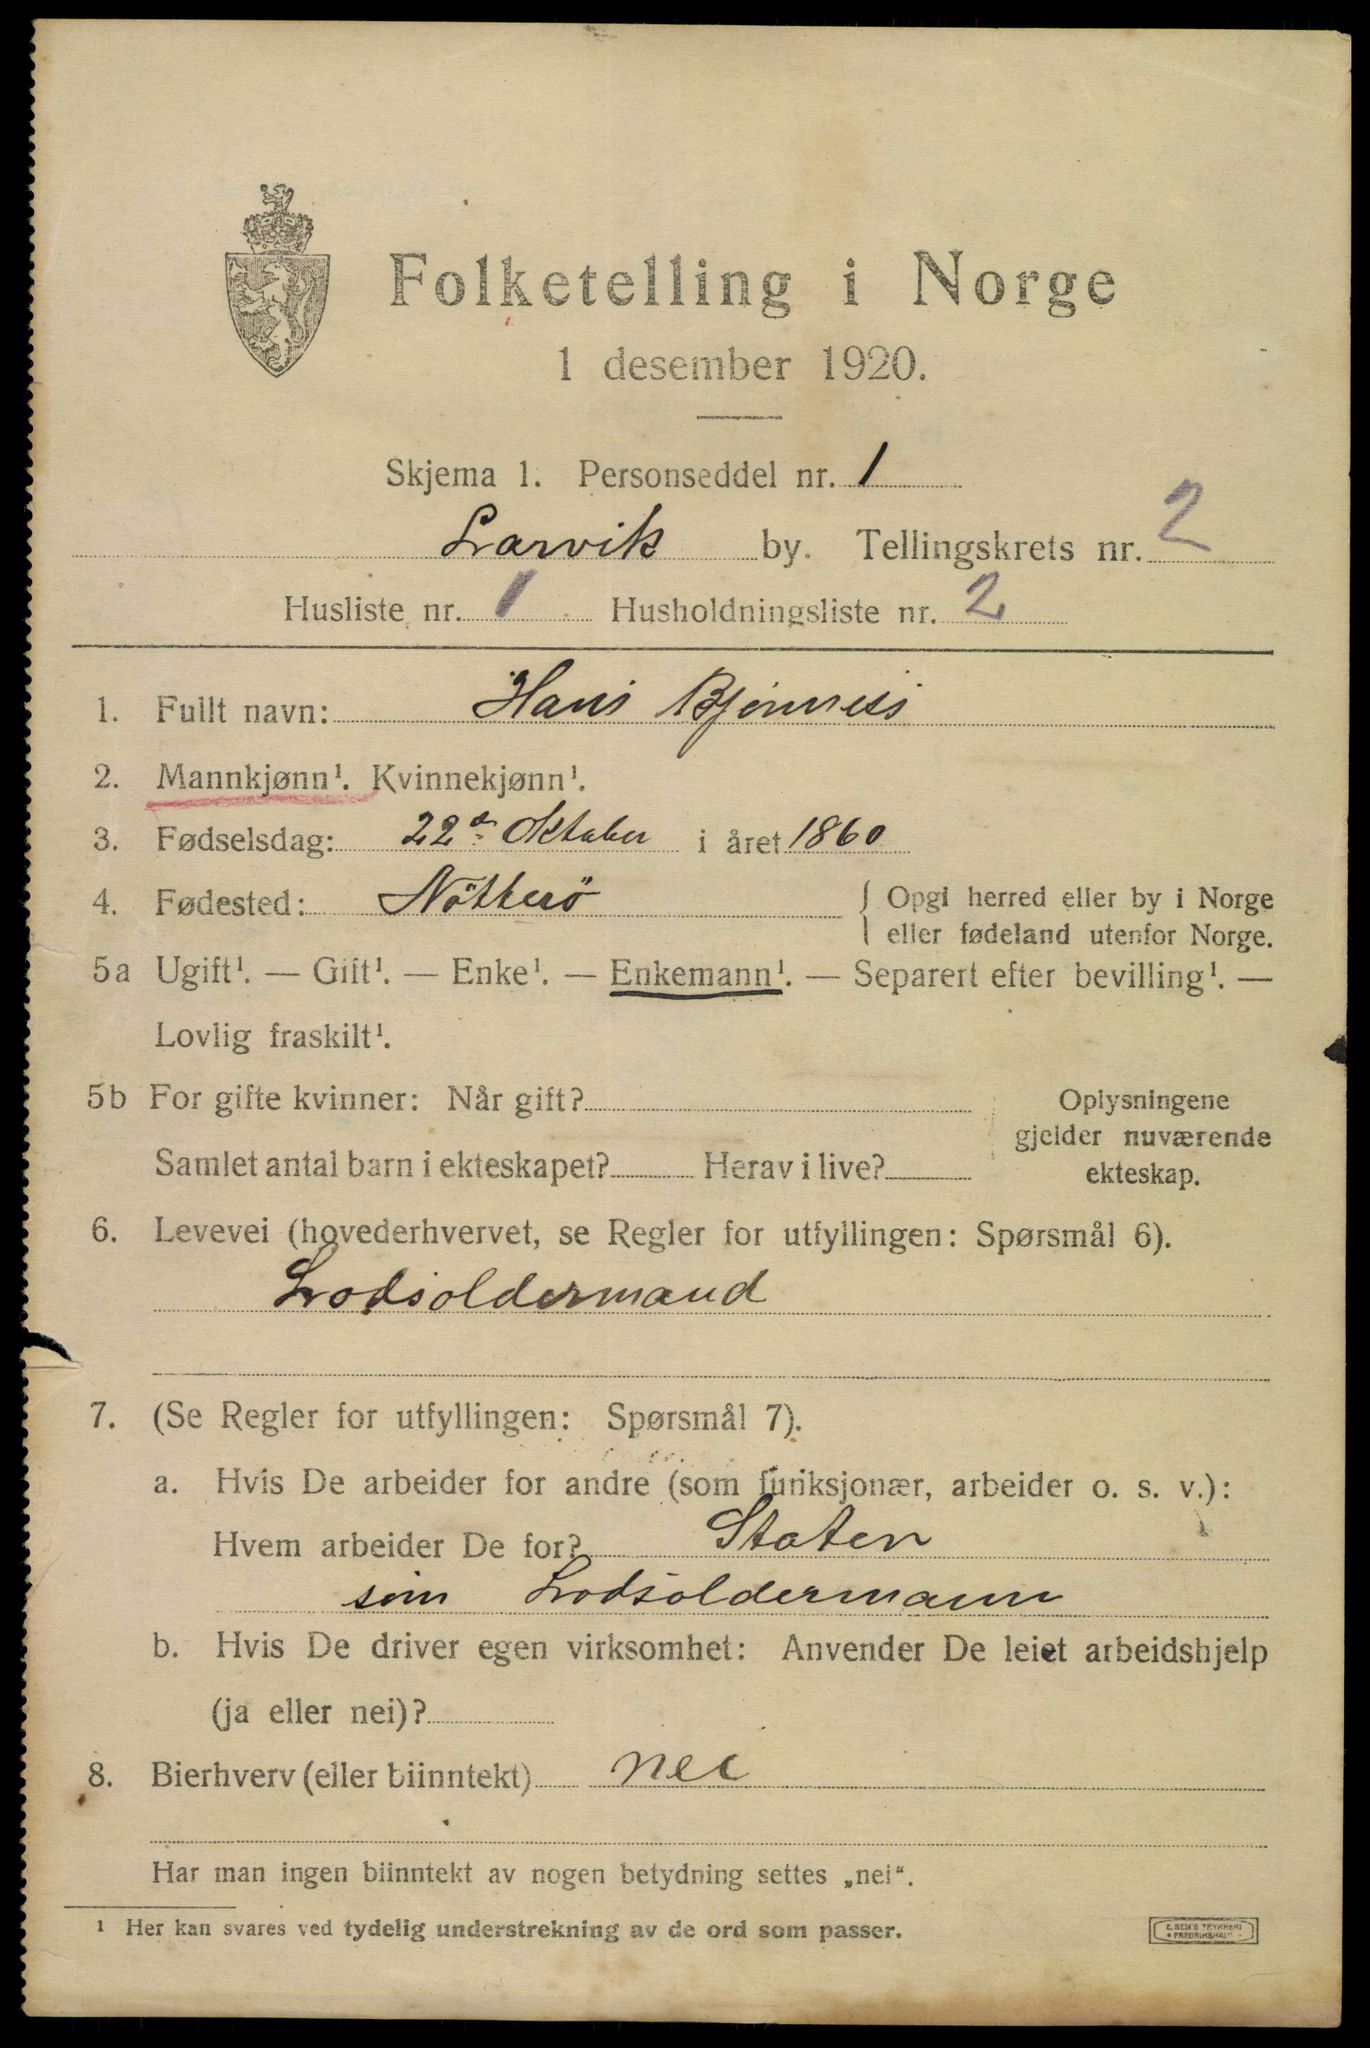 Folketelling i Norge
1 desember 1920.
Skjema 1. Personseddel nr. 1
Larvik by. Tellingskrets nr. 2
Husliste nr. 1 Husholdningsliste nr. 2
1. Fullt navn: Hans Bjønness
2. Mannkjønn¹. Kvinnekjønn¹.
3. Fødselsdag: 22de Oktober i året 1860
4. Fødested: Nötterö { Opgi herred eller by i Norge
eller fødeland utenfor Norge.
5a Ugift¹. — Gift¹. — Enke¹. — Enkemann¹. — Separert efter bevilling¹. —
Lovlig fraskilt¹.
5b For gifte kvinner: Når gift? Oplysningene
gjelder nuværende
Samlet antal barn i ekteskapet? Herav i live? ekteskap.
6. Levevei (hovederhvervet, se Regler for utfyllingen: Spørsmål 6).
Lodsoldermand
7. (Se Regler for utfyllingen: Spørsmål 7).
a. Hvis De arbeider for andre (som funksjonær, arbeider o. s. v.):
Hvem arbeider De for? Staten
som Lodsoldermann
b. Hvis De driver egen virksomhet: Anvender De leiet arbeidshjelp
(ja eller nei)?
8. Bierhverv (eller biinntekt) nei
Har man ingen biinntekt av nogen betydning settes „nei“.
¹ Her kan svares ved tydelig understrekning av de ord som passer.
E. SEM'S TRYKKERI
FREDRIKSHALD